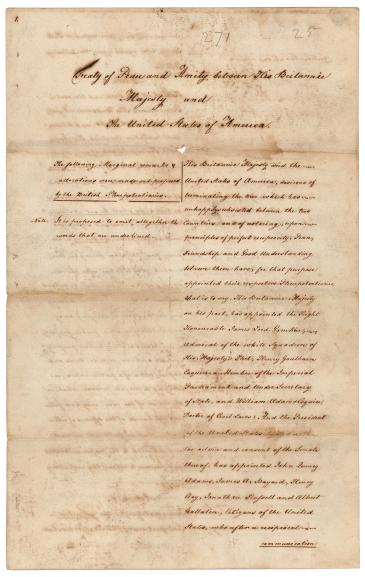 271 25
Treaty of Peace and Amity between His Britannic
Majesty and
The United States of America.
The following Marginal remarks &
alterations were made and proposed
by the British Plenipotentiaries.
Note. It is proposed to omit altogether the
words that are underlined.
His Britannic Majesty and the
United States of America, desirous of
terminating the war which has
unhappily subsisted between the two
Countries, and of restoring, upon
principles of perfect reciprocity, Peace,
Friendship and Good Understanding
between them, have, for that purpose
appointed their respective Plenipotentiaries,
that is to say, His Britannic Majesty
on his part, has appointed the Right
Honourable James Lord Gambier,
Admiral of the white Squadron of
His Majesty's Fleet; Henry Goulburn
Esquire a Member of the Imperial
Parliament and Under Secretary
of State, and William Adams Esquire,
Doctor of Civil Laws: And the President
of the United States, by and with
the advice and consent of the Senate
thereof, has appointed John Quincy
Adams, James A. Bayard, Henry
Clay, Jonathan Russell and Albert
Gallatin, Citizens of the United
States, who after a reciprocal
communication